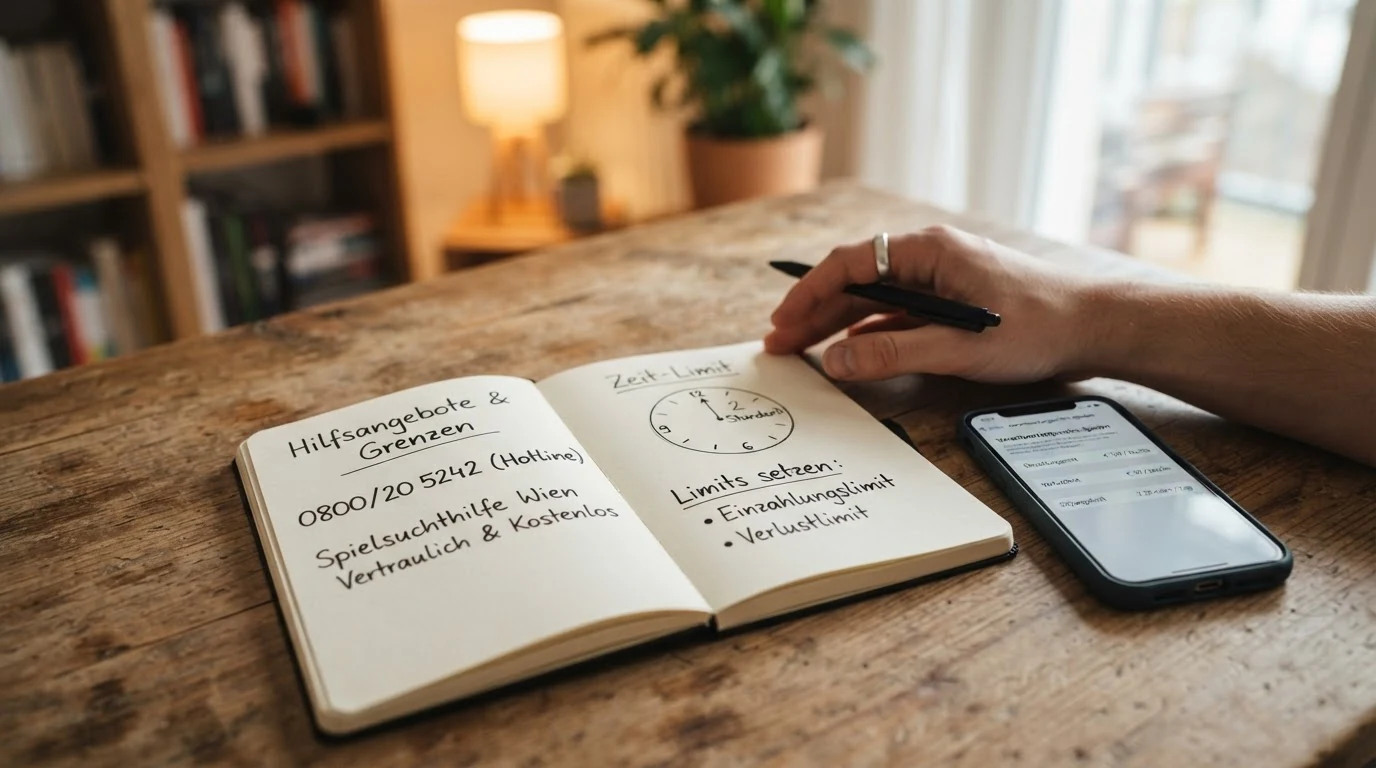 Hilfsangebote &
Grenzen
0800/20 5242 (Hotline)
Spielsuchthilfe Wien
Vertraulich & Kostenlos
Zeit-Limit
12
2
Stunden
9
6
Limits setzen:
• Einzahlungslimit
• Verlustlimit